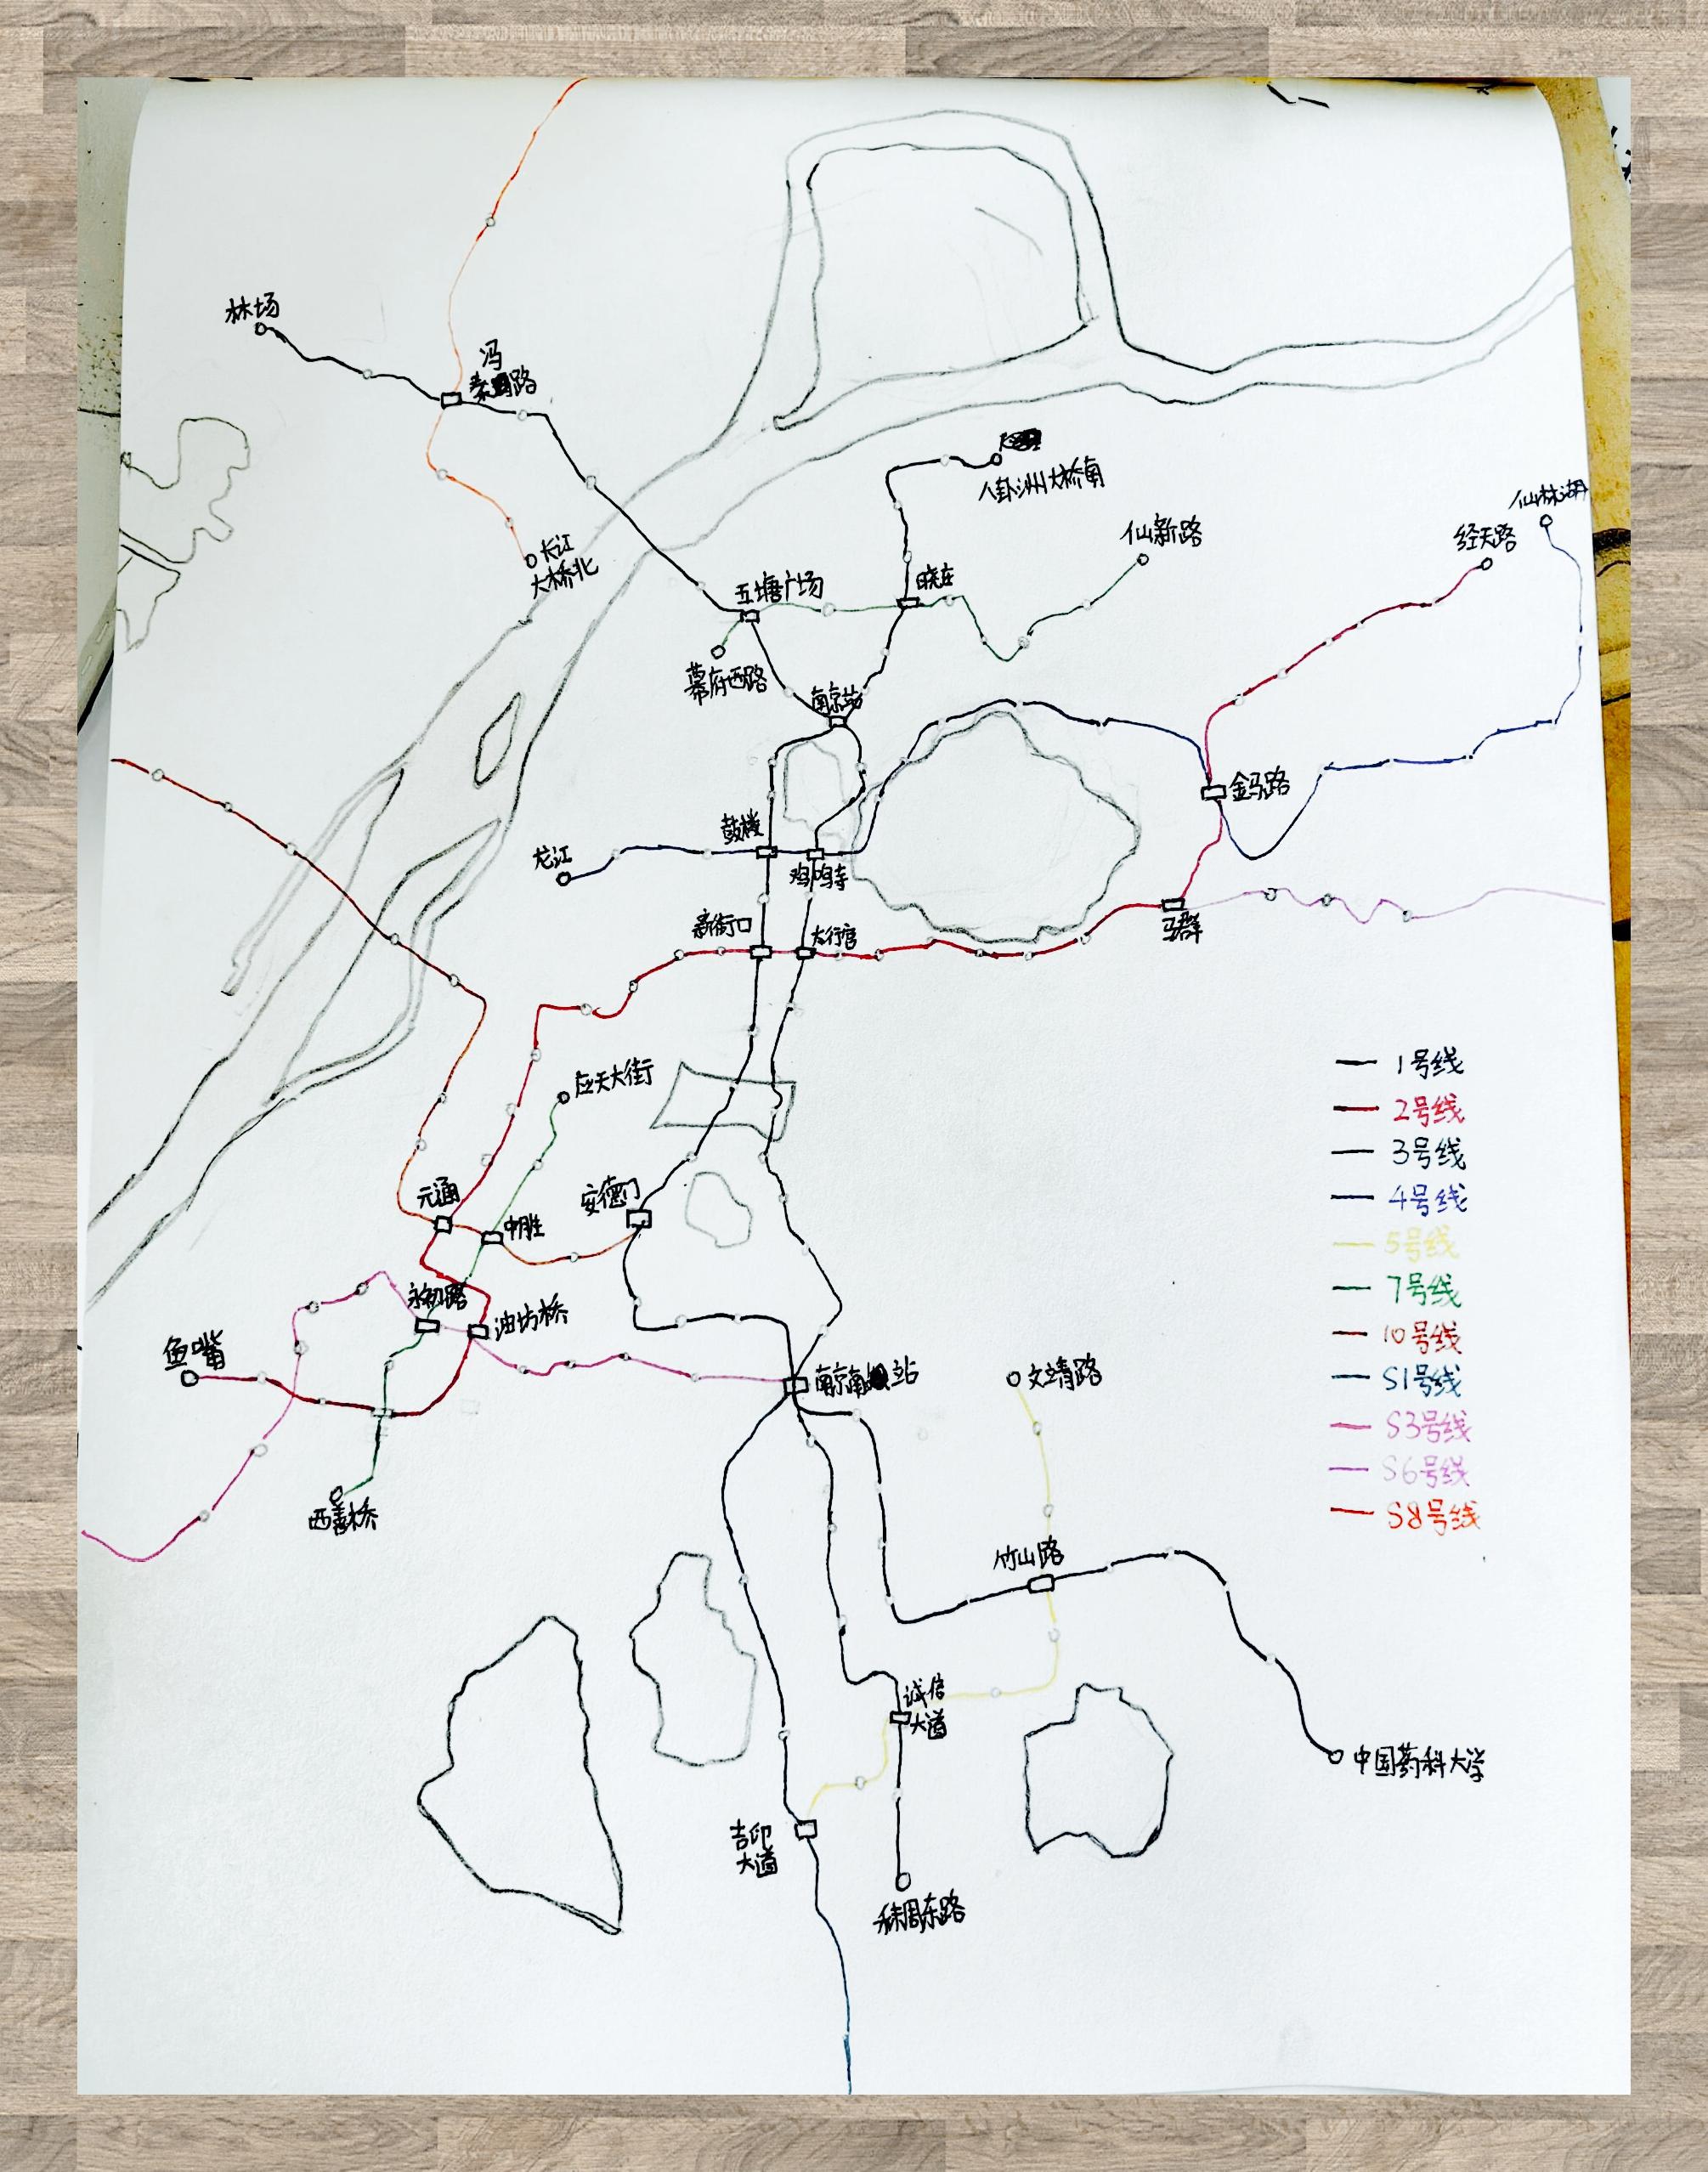 林场
冯
路
长江
大桥北
八卦洲大桥南
仙新路
仙林湖
经天路
五塘广场
晓庄
幕府西路
南京站
金马路
鼓楼
龙江
鸡鸣寺
新街口
大行宫
马群
应天大街
元通
中胜
安德门
永初路
油坊桥
鱼嘴
南京南站
文靖路
西善桥
竹山路
诚信
大道
中国药科大学
吉印
大道
秣周东路
1号线
2号线
3号线
4号线
5号线
7号线
10号线
S1号线
S3号线
S6号线
S8号线